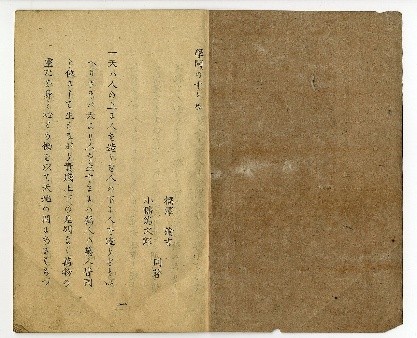 學問のすゝめ
福澤 諭吉
小幡篤次郎 同著
一天ハ人の上に人を造らず人の下に人を造らずと云
へりされバ天より人を生ずるにハ萬人ハ萬人皆同
じ位にして生れながら貴賤上下の差別なく萬物の
靈たる身と心との働を以て天地の間にあるよろづの
一